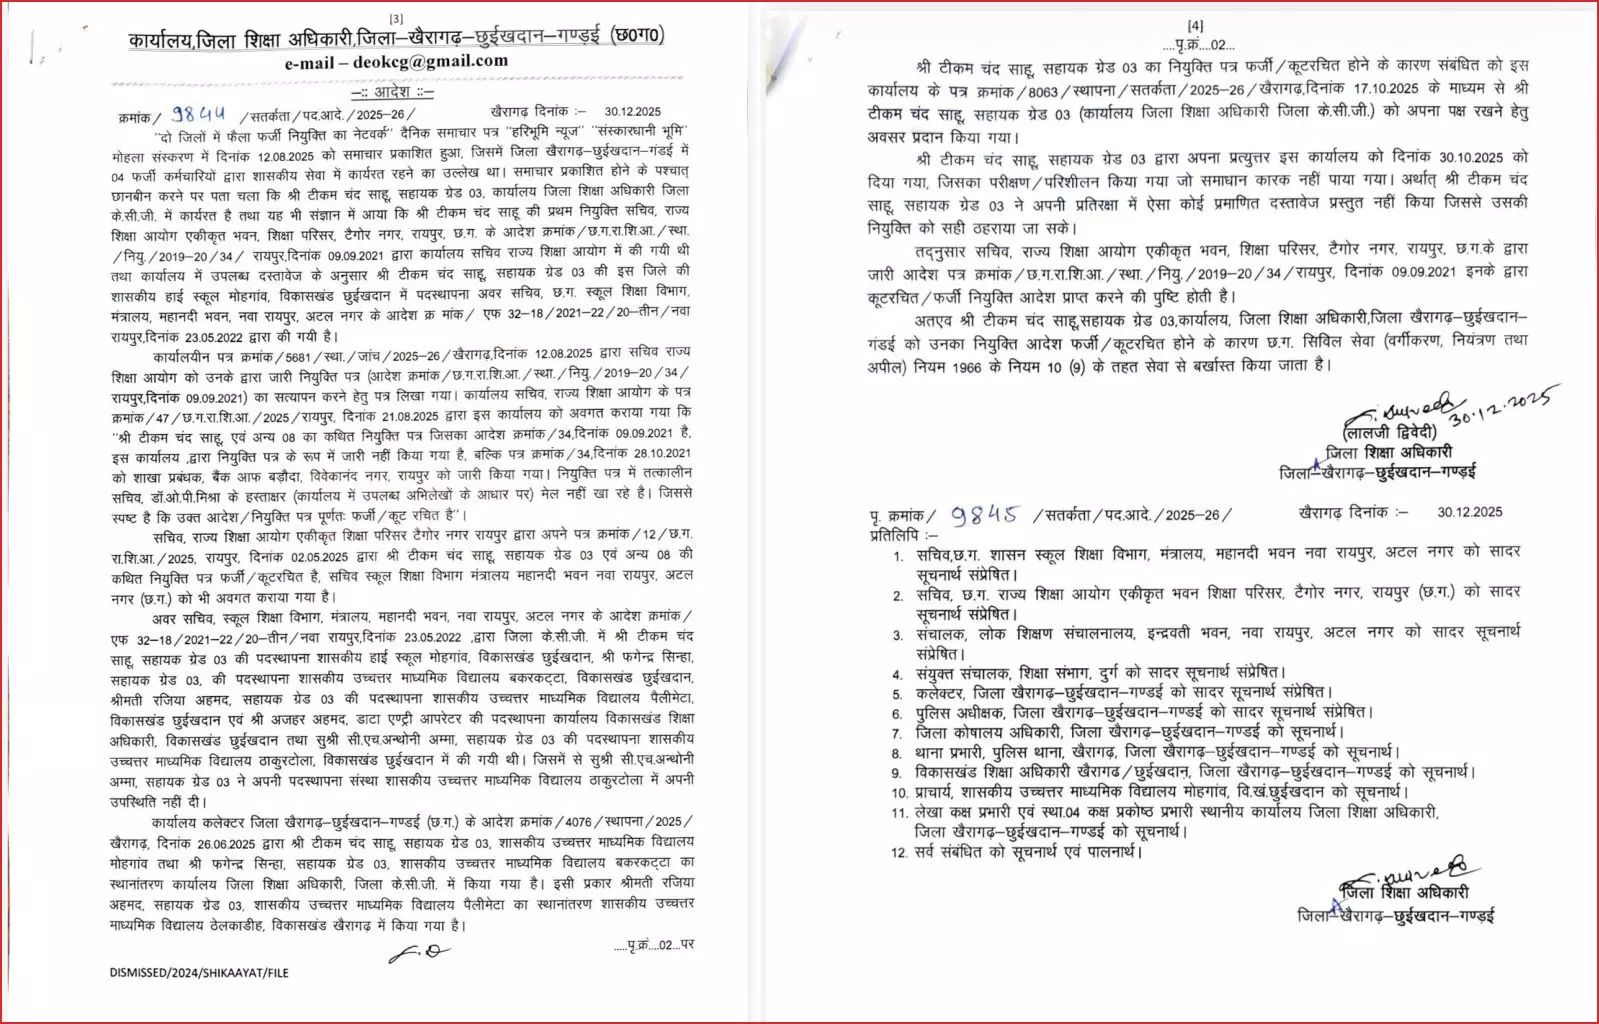 [3]
कार्यालय,जिला शिक्षा अधिकारी,जिला–खैरागढ़–छुईखदान–गण्डई (छ0ग0)
e-mail – deokcg@gmail.com
–:: आदेश ::–
क्रमांक/ 9844 /सतर्कता/पद.आदे./2025–26/ खैरागढ़ दिनांक :– 30.12.2025
"दो जिलों में फैला फर्जी नियुक्ति का नेटवर्क" दैनिक समाचार पत्र "हरिभूमि न्यूज" "संस्कारधानी भूमि"
मोहला संस्करण में दिनांक 12.08.2025 को समाचार प्रकाशित हुआ, जिसमें जिला खैरागढ़–छुईखदान–गंडई में
04 फर्जी कर्मचारियों द्वारा शासकीय सेवा में कार्यरत रहने का उल्लेख था। समाचार प्रकाशित होने के पश्चात्
छानबीन करने पर पता चला कि श्री टीकम चंद साहू, सहायक ग्रेड 03, कार्यालय जिला शिक्षा अधिकारी जिला
के.सी.जी. में कार्यरत है तथा यह भी संज्ञान में आया कि श्री टीकम चंद साहू की प्रथम नियुक्ति सचिव, राज्य
शिक्षा आयोग एकीकृत भवन, शिक्षा परिसर, टैगोर नगर, रायपुर, छ.ग. के आदेश क्रमांक/छ.ग.रा.शि.आ./स्था.
/नियु./2019–20/34/ रायपुर,दिनांक 09.09.2021 द्वारा कार्यालय सचिव राज्य शिक्षा आयोग में की गयी थी
तथा कार्यालय में उपलब्ध दस्तावेज के अनुसार श्री टीकम चंद साहू, सहायक ग्रेड 03 की इस जिले की
शासकीय हाई स्कूल मोहगांव, विकासखंड छुईखदान में पदस्थापना अवर सचिव, छ.ग. स्कूल शिक्षा विभाग,
मंत्रालय, महानदी भवन, नवा रायपुर, अटल नगर के आदेश क्र मांक/ एफ 32–18/2021–22/20–तीन/नवा
रायपुर,दिनांक 23.05.2022 द्वारा की गयी है।
कार्यालयीन पत्र क्रमांक/5681/स्था./जांच/2025–26/खैरागढ़,दिनांक 12.08.2025 द्वारा सचिव राज्य
शिक्षा आयोग को उनके द्वारा जारी नियुक्ति पत्र (आदेश क्रमांक/छ.ग.रा.शि.आ./स्था./नियु./2019–20/34/
रायपुर,दिनांक 09.09.2021) का सत्यापन करने हेतु पत्र लिखा गया। कार्यालय सचिव, राज्य शिक्षा आयोग के पत्र
क्रमांक/47/छ.ग.रा.शि.आ./2025/रायपुर, दिनांक 21.08.2025 द्वारा इस कार्यालय को अवगत कराया गया कि
"श्री टीकम चंद साहू, एवं अन्य 08 का कथित नियुक्ति पत्र जिसका आदेश क्रमांक/34,दिनांक 09.09.2021 है,
इस कार्यालय ,द्वारा नियुक्ति पत्र के रूप में जारी नहीं किया गया है, बल्कि पत्र क्रमांक/34,दिनांक 28.10.2021
को शाखा प्रबंधक, बैंक आफ बड़ौदा, विवेकानंद नगर, रायपुर को जारी किया गया। नियुक्ति पत्र में तत्कालीन
सचिव, डॉ.ओ.पी.मिश्रा के हस्ताक्षर (कार्यालय में उपलब्ध अभिलेखों के आधार पर) मेल नहीं खा रहे है। जिससे
स्पष्ट है कि उक्त आदेश/नियुक्ति पत्र पूर्णतः फर्जी/कूट रचित है"।
सचिव, राज्य शिक्षा आयोग एकीकृत शिक्षा परिसर टैगोर नगर रायपुर द्वारा अपने पत्र क्रमांक/12/छ.ग.
रा.शि.आ./2025, रायपुर, दिनांक 02.05.2025 द्वारा श्री टीकम चंद साहू, सहायक ग्रेड 03 एवं अन्य 08 की
कथित नियुक्ति पत्र फर्जी/कूटरचित है, सचिव स्कूल शिक्षा विभाग मंत्रालय महानदी भवन नवा रायपुर, अटल
नगर (छ.ग.) को भी अवगत कराया गया है।
अवर सचिव, स्कूल शिक्षा विभाग, मंत्रालय, महानदी भवन, नवा रायपुर, अटल नगर के आदेश क्रमांक/
एफ 32–18/2021–22/20–तीन/नवा रायपुर,दिनांक 23.05.2022 ,द्वारा जिला के.सी.जी. में श्री टीकम चंद
साहू, सहायक ग्रेड 03 की पदस्थापना शासकीय हाई स्कूल मोहगांव, विकासखंड छुईखदान, श्री फगेन्द्र सिन्हा,
सहायक ग्रेड 03, की पदस्थापना शासकीय उच्चत्तर माध्यमिक विद्यालय बकरकट्टा, विकासखंड छुईखदान,
श्रीमती रजिया अहमद, सहायक ग्रेड 03 की पदस्थापना शासकीय उच्चत्तर माध्यमिक विद्यालय पैलीमेटा,
विकासखंड छुईखदान एवं श्री अजहर अहमद, डाटा एण्ट्री आपरेटर की पदस्थापना कार्यालय विकासखंड शिक्षा
अधिकारी, विकासखंड छुईखदान तथा सुश्री सी.एच.अन्थोनी अम्मा, सहायक ग्रेड 03 की पदस्थापना शासकीय
उच्चत्तर माध्यमिक विद्यालय ठाकुरटोला, विकासखंड छुईखदान में की गयी थी। जिसमें से सुश्री सी.एच.अन्थोनी
अम्मा, सहायक ग्रेड 03 ने अपनी पदस्थापना संस्था शासकीय उच्चत्तर माध्यमिक विद्यालय ठाकुरटोला में अपनी
उपस्थिति नहीं दी।
कार्यालय कलेक्टर जिला खैरागढ़–छुईखदान–गण्डई (छ.ग.) के आदेश क्रमांक/4076/स्थापना/2025/
खैरागढ़, दिनांक 26.06.2025 द्वारा श्री टीकम चंद साहू, सहायक ग्रेड 03, शासकीय उच्चत्तर माध्यमिक विद्यालय
मोहगांव तथा श्री फगेन्द्र सिन्हा, सहायक ग्रेड 03, शासकीय उच्चत्तर माध्यमिक विद्यालय बकरकट्टा का
स्थानांतरण कार्यालय जिला शिक्षा अधिकारी, जिला के.सी.जी. में किया गया है। इसी प्रकार श्रीमती रजिया
अहमद, सहायक ग्रेड 03, शासकीय उच्चत्तर माध्यमिक विद्यालय पैलीमेटा का स्थानांतरण शासकीय उच्चत्तर
माध्यमिक विद्यालय ठेलकाडीह, विकासखंड खैरागढ़ में किया गया है।
.....पृ.क्रं....02...पर
DISMISSED/2024/SHIKAAYAT/FILE
[4]
....पृ.क्रं....02...
श्री टीकम चंद साहू, सहायक ग्रेड 03 का नियुक्ति पत्र फर्जी/कूटरचित होने के कारण संबंधित को इस
कार्यालय के पत्र क्रमांक/8063/स्थापना/सतर्कता/2025–26/खैरागढ़,दिनांक 17.10.2025 के माध्यम से श्री
टीकम चंद साहू, सहायक ग्रेड 03 (कार्यालय जिला शिक्षा अधिकारी जिला के.सी.जी.) को अपना पक्ष रखने हेतु
अवसर प्रदान किया गया।
श्री टीकम चंद साहू, सहायक ग्रेड 03 द्वारा अपना प्रत्युत्तर इस कार्यालय को दिनांक 30.10.2025 को
दिया गया, जिसका परीक्षण/परिशीलन किया गया जो समाधान कारक नहीं पाया गया। अर्थात् श्री टीकम चंद
साहू, सहायक ग्रेड 03 ने अपनी प्रतिरक्षा में ऐसा कोई प्रमाणित दस्तावेज प्रस्तुत नहीं किया जिससे उसकी
नियुक्ति को सही ठहराया जा सके।
तद्नुसार सचिव, राज्य शिक्षा आयोग एकीकृत भवन, शिक्षा परिसर, टैगोर नगर, रायपुर, छ.ग.के द्वारा
जारी आदेश पत्र क्रमांक/छ.ग.रा.शि.आ./स्था./नियु./2019–20/34/रायपुर, दिनांक 09.09.2021 इनके द्वारा
कूटरचित/फर्जी नियुक्ति आदेश प्राप्त करने की पुष्टि होती है।
अतएव श्री टीकम चंद साहू,सहायक ग्रेड 03,कार्यालय, जिला शिक्षा अधिकारी,जिला खैरागढ़–छुईखदान–
गंडई को उनका नियुक्ति आदेश फर्जी/कूटरचित होने के कारण छ.ग. सिविल सेवा (वर्गीकरण, नियंत्रण तथा
अपील) नियम 1966 के नियम 10 (9) के तहत सेवा से बर्खास्त किया जाता है।
30.12.2025
(लालजी द्विवेदी)
जिला शिक्षा अधिकारी
जिला–खैरागढ़–छुईखदान–गण्डई
पृ. क्रमांक/ 9845 /सतर्कता/पद.आदे./2025–26/ खैरागढ दिनांक :– 30.12.2025
प्रतिलिपि :–
1. सचिव,छ.ग. शासन स्कूल शिक्षा विभाग, मंत्रालय, महानदी भवन नवा रायपुर, अटल नगर को सादर
सूचनार्थ संप्रेषित।
2. सचिव, छ.ग. राज्य शिक्षा आयोग एकीकृत भवन शिक्षा परिसर, टैगोर नगर, रायपुर (छ.ग.) को सादर
सूचनार्थ संप्रेषित।
3. संचालक, लोक शिक्षण संचालनालय, इन्द्रवती भवन, नवा रायपुर, अटल नगर को सादर सूचनार्थ
संप्रेषित।
4. संयुक्त संचालक, शिक्षा संभाग, दुर्ग को सादर सूचनार्थ संप्रेषित।
5. कलेक्टर, जिला खैरागढ़–छुईखदान–गण्डई को सादर सूचनार्थ संप्रेषित।
6. पुलिस अधीक्षक, जिला खैरागढ़–छुईखदान–गण्डई को सादर सूचनार्थ संप्रेषित।
7. जिला कोषालय अधिकारी, जिला खैरागढ़–छुईखदान–गण्डई को सूचनार्थ।
8. थाना प्रभारी, पुलिस थाना, खैरागढ़, जिला खैरागढ़–छुईखदान–गण्डई को सूचनार्थ।
9. विकासखंड शिक्षा अधिकारी खैरागढ/छुईखदान, जिला खैरागढ़–छुईखदान–गण्डई को सूचनार्थ।
10. प्राचार्य, शासकीय उच्चत्तर माध्यमिक विद्यालय मोहगांव, वि.खं.छुईखदान को सूचनार्थ।
11. लेखा कक्ष प्रभारी एवं स्था.04 कक्ष प्रकोष्ठ प्रभारी स्थानीय कार्यालय जिला शिक्षा अधिकारी,
जिला खैरागढ़–छुईखदान–गण्डई को सूचनार्थ।
12. सर्व संबंधित को सूचनार्थ एवं पालनार्थ।
जिला शिक्षा अधिकारी
जिला–खैरागढ़–छुईखदान–गण्डई